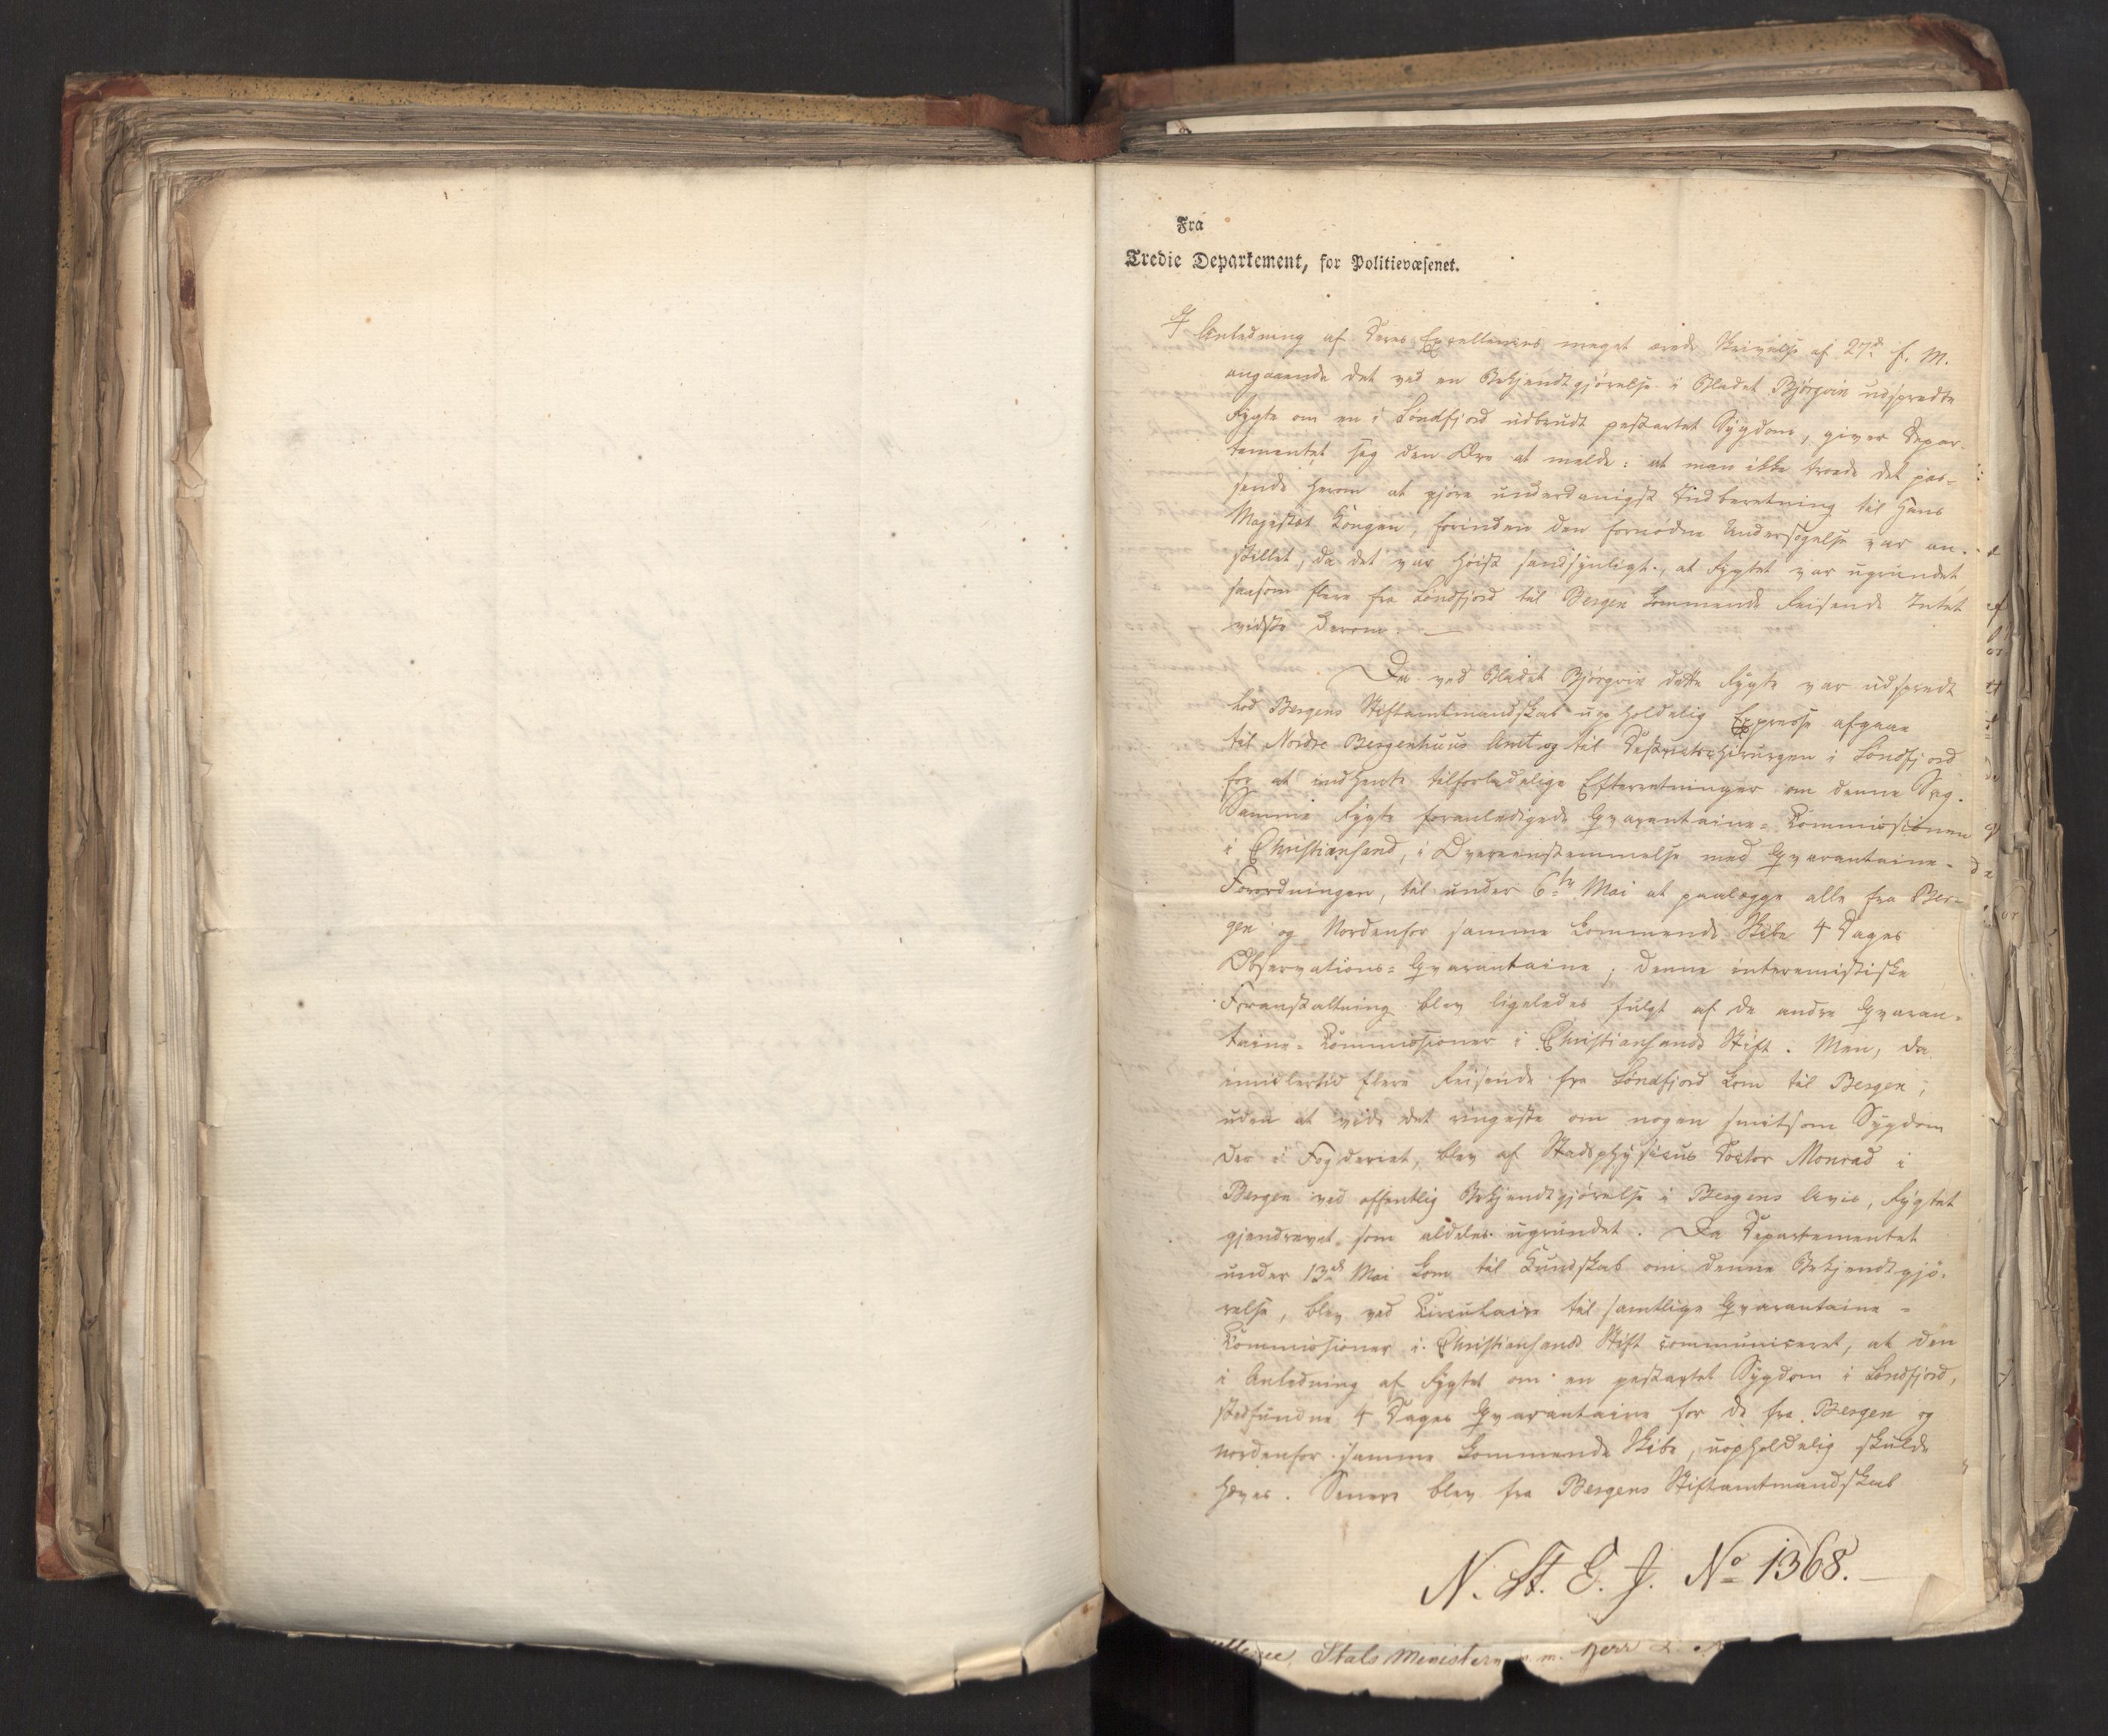 Fra
Tredie Departement, for Politievæsenet.
I Anledning af Deres Excellences meget ærede Skrivelse af 27de f. M.
angaaende det ved en Bekjendtgjørelse i Bladet Bjørgvin udspredte
Rygte om en i Søndfjord udbrudt pestartet Sygdom, giver Depar-
tementet sig den Ære at melde: at man ikke troede det pas-
sende herom at gjøre underdanigst Indberetning til Hans
Majestæt Kongen, forinden den fornødne Undersøgelse var an-
stillet, da det var høist sandsynligt, at Rygtet var ugrundet,
saasom flere fra Søndfjord til Bergen kommende Reisende Intet
vidste derom. —
Da ved Bladet Bjørgvin dette Rygte var udspredt
lod Bergens Stiftamtmandskab uopholdelig Expresse afgaae
til Nordre Bergenhuus Amt og til Distriktschirurgen i Søndfjord
for at indhente tilforladelige Efterretninger om denne Sag.
Samme Rygte foranledigede Qvarantaine-Kommissionen
i Christiansand, i Overeenstemmelse med Qvarantaine-
Forordningen, til under 6te Mai at paalægge alle fra Ber-
gen og Nordenfor samme kommende Skibe 4 Dages
Observations-Qvarantaine; denne interemistiske
Foranstaltning blev ligeledes fulgt af de andre Qvaran-
taine-Kommissioner i Christiansands Stift. Men, da
imidlertid flere Reisende fra Søndfjord kom til Bergen,
uden at vide det ringeste om nogen smitsom Sygdom
der i Fogderiet, blev af Stadsphysicus Doctor Monrad i
Bergen ved offentlig Bekjendtgjørelse i Bergens Avis, Rygtet
gjendrevet som aldeles ugrundet. Da Departementet
under 13de Mai kom til Kundskab om denne Bekjendtgjø-
relse, blev ved Circulaire til samtlige Qvarantaine-
Kommissioner i Christiansands Stift communiceret, at den
i Anledning af Rygtet om en pestartet Sygdom i Søndfjord,
stedfundne 4 Dages Qvarantaine for de fra Bergen og
nordenfor samme kommende Skibe, uopholdelig skulde
hæves. Senere blev fra Bergens Stiftamtmandskab
N. St. E. J. No 1368.
Stats Ministeren m. m. Herr